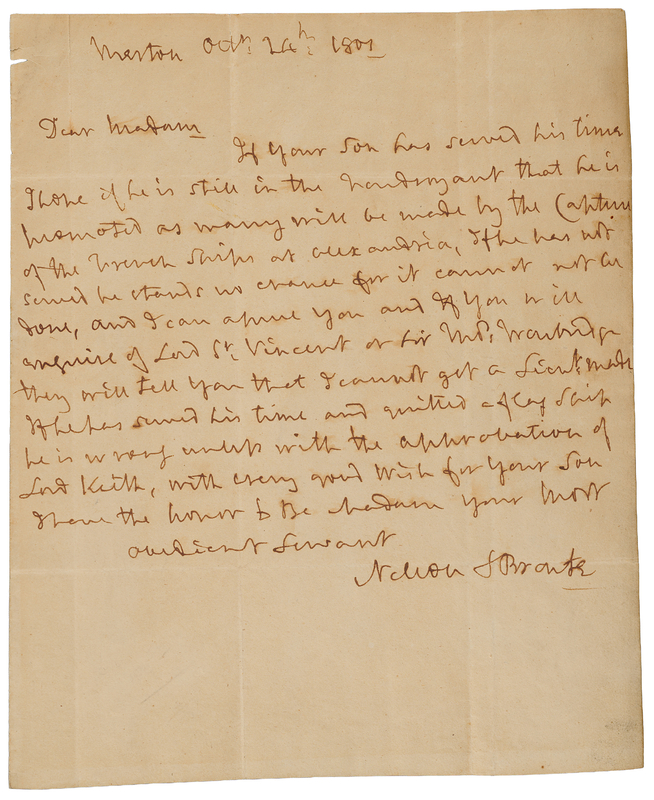 Merton Octr. 24th. 1801
Dear Madam
If Your Son has served his time
I hope if he is still in the that he is
promoted as many will be made by the Capture
of the French Ships at alexandria, If he has not
served he stands no chance for it cannot not be
done, and I can assure You and If You will
enquire of Lord St. Vincent or Sir Thos. Troubridge
they will tell You that I cannot get a Lieut. made
If he has served his time and quitted a flag Ship
he is wrong unless with the approbation of
Lord Keith, with every good wish for Your Son
I have the honor to Be Madam Your Most
obedient Servant
Nelson & Bronte